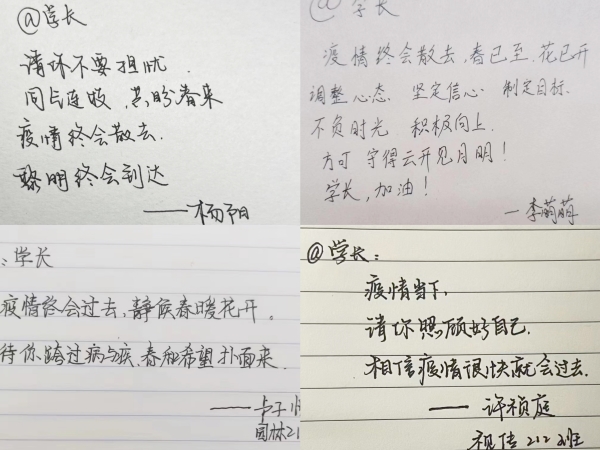 @学长
请你不要担忧
同气连枝,共盼春来
疫情终会散去
黎明终会到达
——杨阳
@学长
疫情终会散去,春已至,花已开
调整心态 坚定信心 制定目标
不负时光 积极向上
方可 守得云开见月明!
学长,加油!
—李萌萌
:学长
疫情终会过去,静候春暖花开。
待你跨过病与疾,春和希望扑面来
——卢子
园林21
@学长:
疫情当下,
请你照顾好自己.
相信疫情很快就会过去.
—— 许祯庭
视传212班